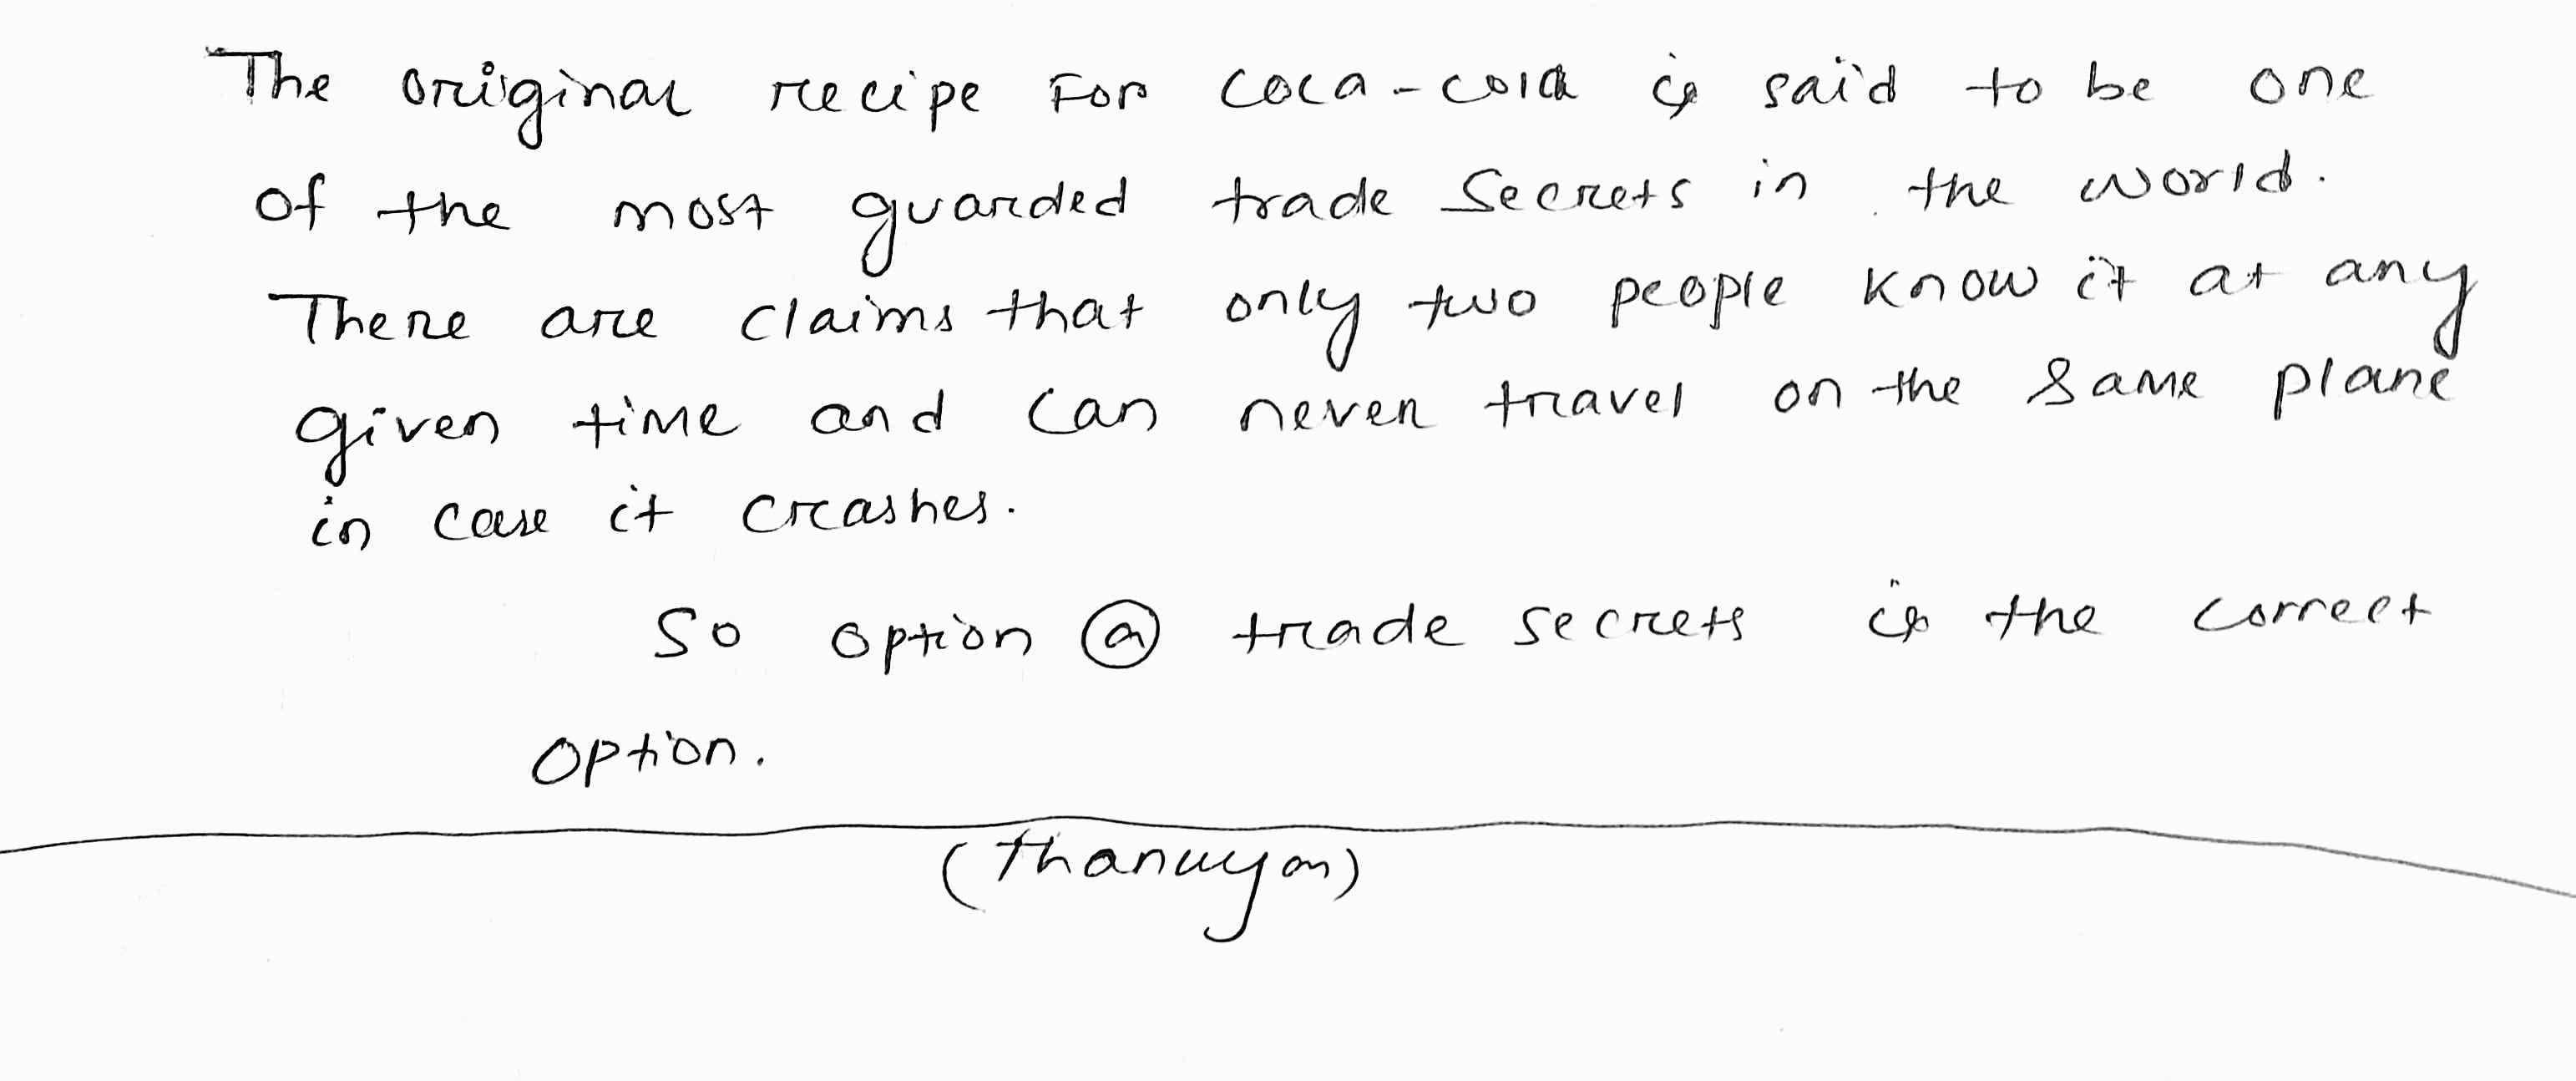 The original recipe For coca-cola is said to be one
of the most guarded trade Secrets in the world.
There are claims that only two people know it at any
given time and can never travel on the same plane
in case it crashes.
So option ⓐ trade secrets is the correct
option.